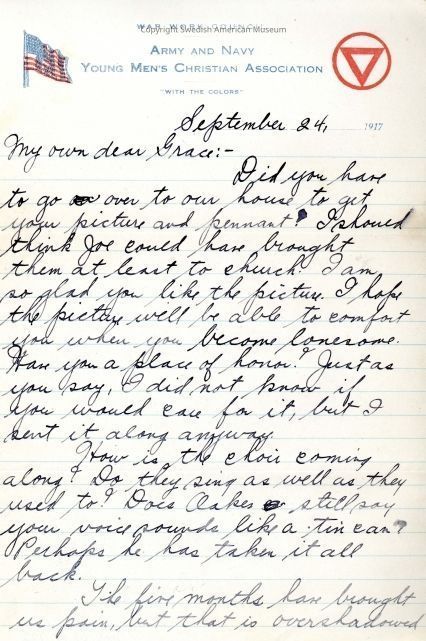 WAR WORK COUNCIL
Copyright Swedish American Museum
ARMY AND NAVY
YOUNG MEN'S CHRISTIAN ASSOCIATION
"WITH THE COLORS"
September 24, 1917
My own dear Grace:-
Did you have
to go over to our house to get
your picture and pennant? I should
think Joe could have brought
them at least to church. I am
so glad you like the picture. I hope
the picture will be able to comfort
you when you become lonesome.
Have you a place of honor? Just as
you say, I did not know if
you would care for it, but I
sent it along anyway.
How is the choir coming
along? Do they sing as well as they
used to? Does Oakes still say
your voice sounds like a tin can?
Perhaps he has taken it all
back.
The five months have brought
us pain, but that is overshadowed